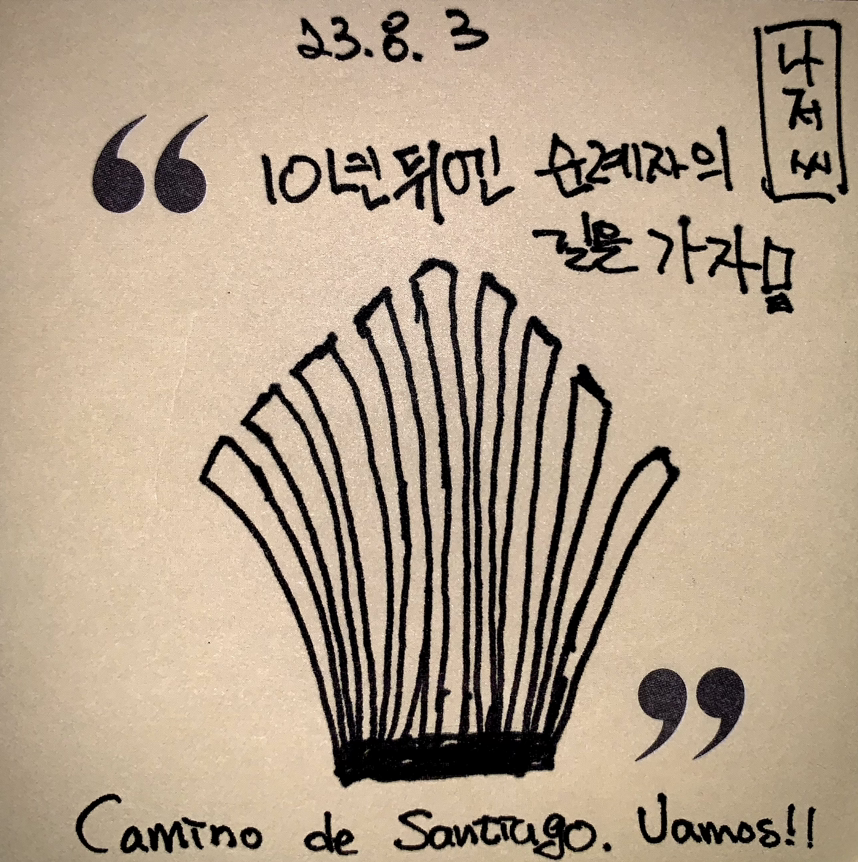 23.8.3
나저씨
“
10년 뒤엔 순례자의
길을 가자!
”
Camino de Santiago. Vamos!!